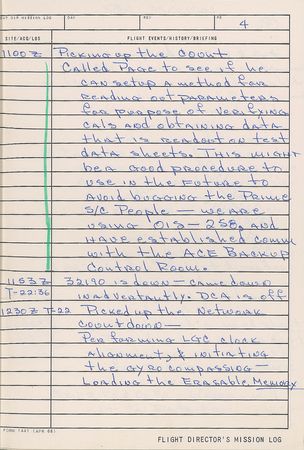 MISSION LOG
DAY
REV
4
SITE/ACQ/LOS
FLIGHT EVENTS/HISTORY/BRIEFING
1100Z Picking up the count
Called Page to see if he
can setup a method for
reading out parameters
for purpose of verifying
cals and obtaining data
that is readout on test
data sheets. This might
be a good procedure to
use in the future to
avoid bugging the Prime
S/C People — we are
using OIS-258, and
have established comm
with the ACE Backup
Control Room.
1153Z 32190 is down — came down
T-22:36 inadvertantly. DCA is off
1230Z T-22 Picked up the Network
Countdown —
Performing LGC clock
alignment, & initiating
the gyro compassing —
Loading the Erasable Memory
FORM 1441 (APR 68)
FLIGHT DIRECTOR'S MISSION LOG